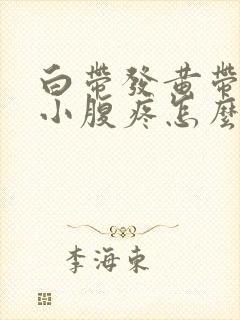 白帶發黄帶
小腹疼怎麽
李海東